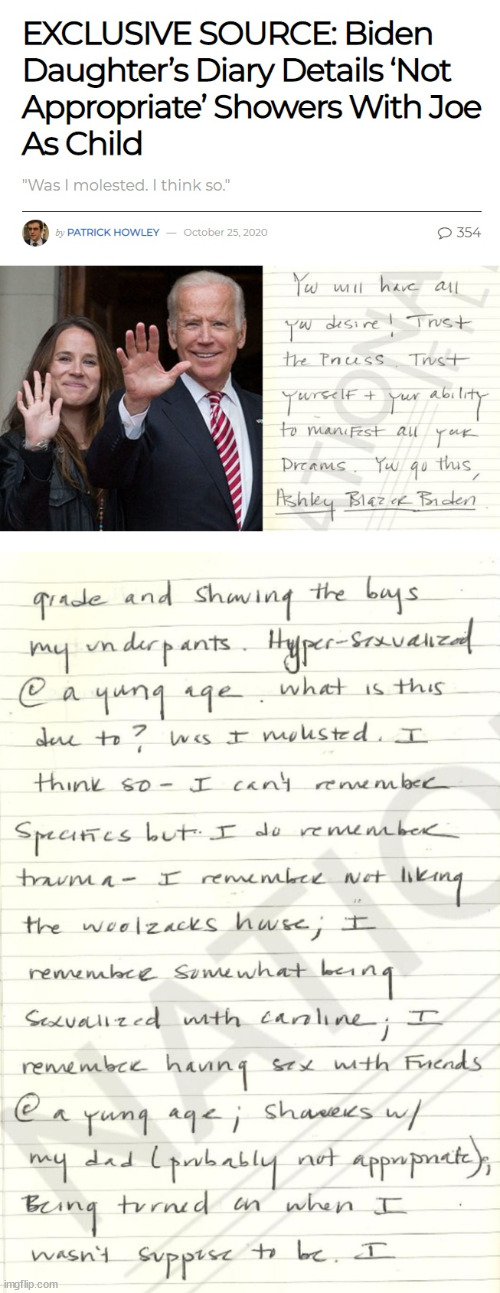 EXCLUSIVE SOURCE: Biden
Daughter's Diary Details 'Not
Appropriate' Showers With Joe
As Child
"Was I molested. I think so."
by PATRICK HOWLEY — October 25, 2020
354
Yw will have all
yw desire! Trust
the Process. Trust
yurself + yur ability
to manifest all your
Dreams. Yw go this,
Ashley Blazer Biden
grade and showing the boys
my underpants. Hyper-sexualized
@ a yung age. what is this
due to? Was I molested. I
think so - I can't remember
specifics but I do remember
trauma - I remember not liking
the woolzacks house; I
remember somewhat being
sexualized with caroline; I
remember having sex with friends
@ a yung age; showers w/
my dad (probably not appropriate);
Being turned on when I
wasn't suppose to be. I
NATIO
imgflip.com